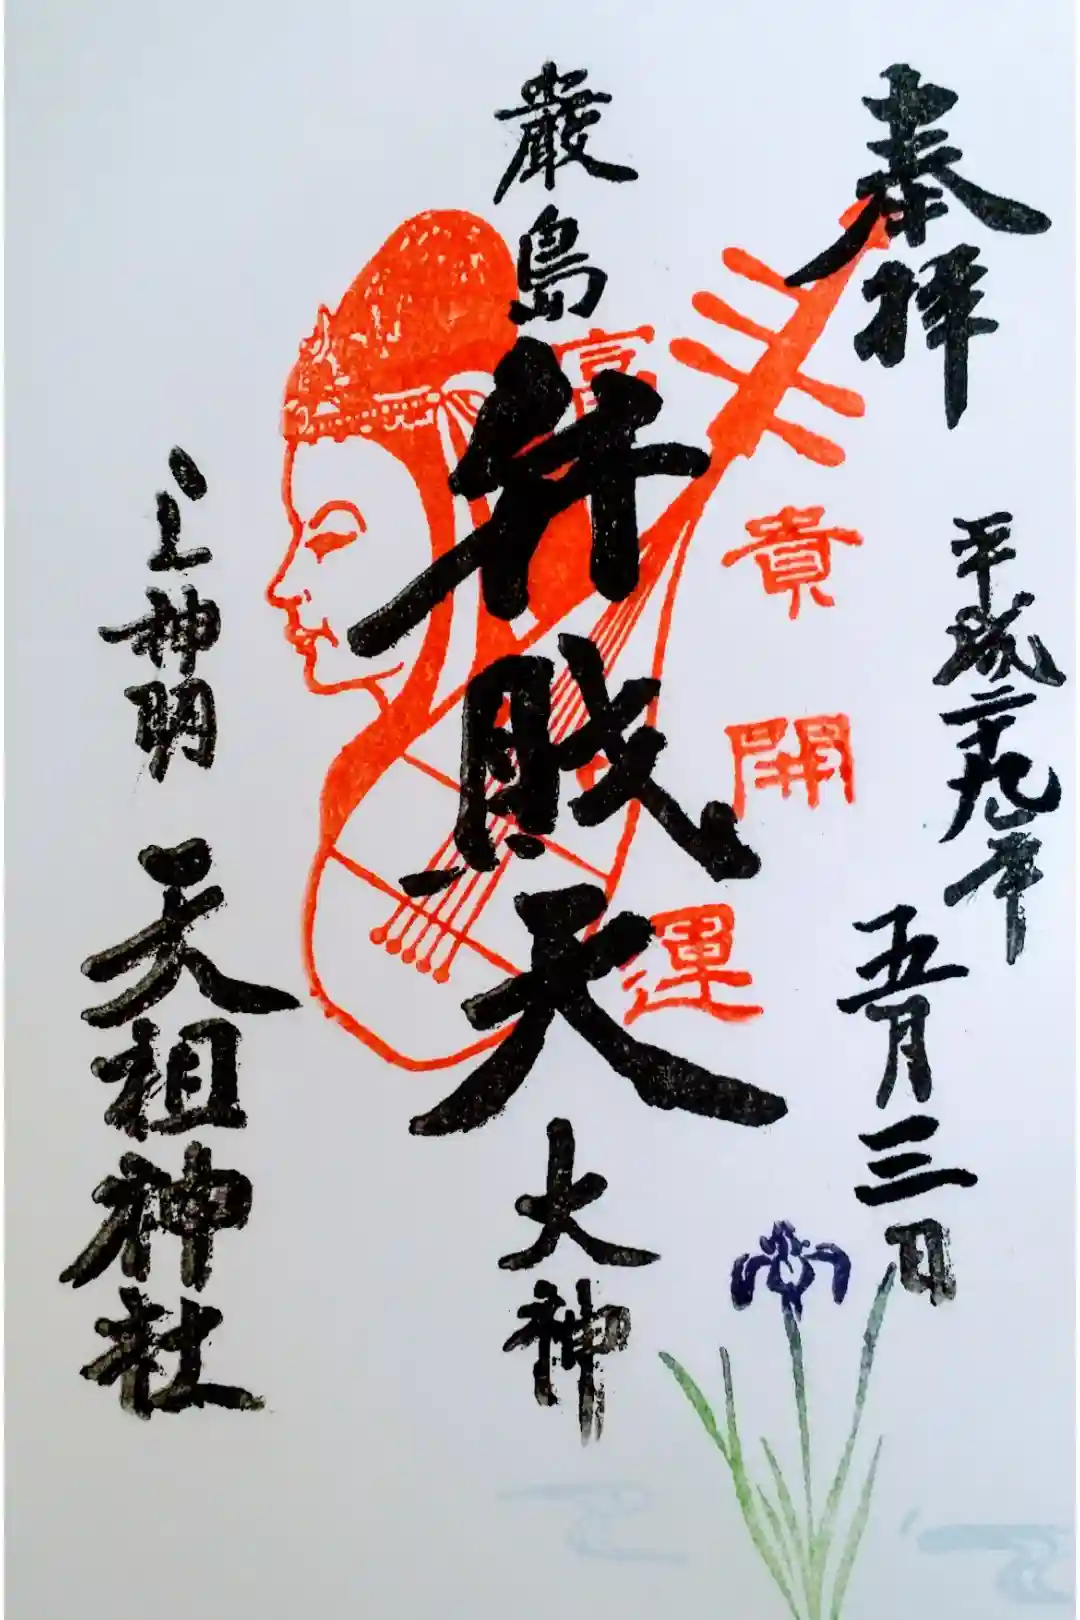 奉拝
平成二十九年
五月三日
厳島
弁財天
大神
富貴開運
上神明
天祖神社